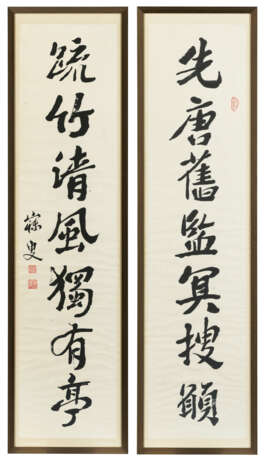 先唐舊監冥搜領
疏竹清風獨有亭
寐叟